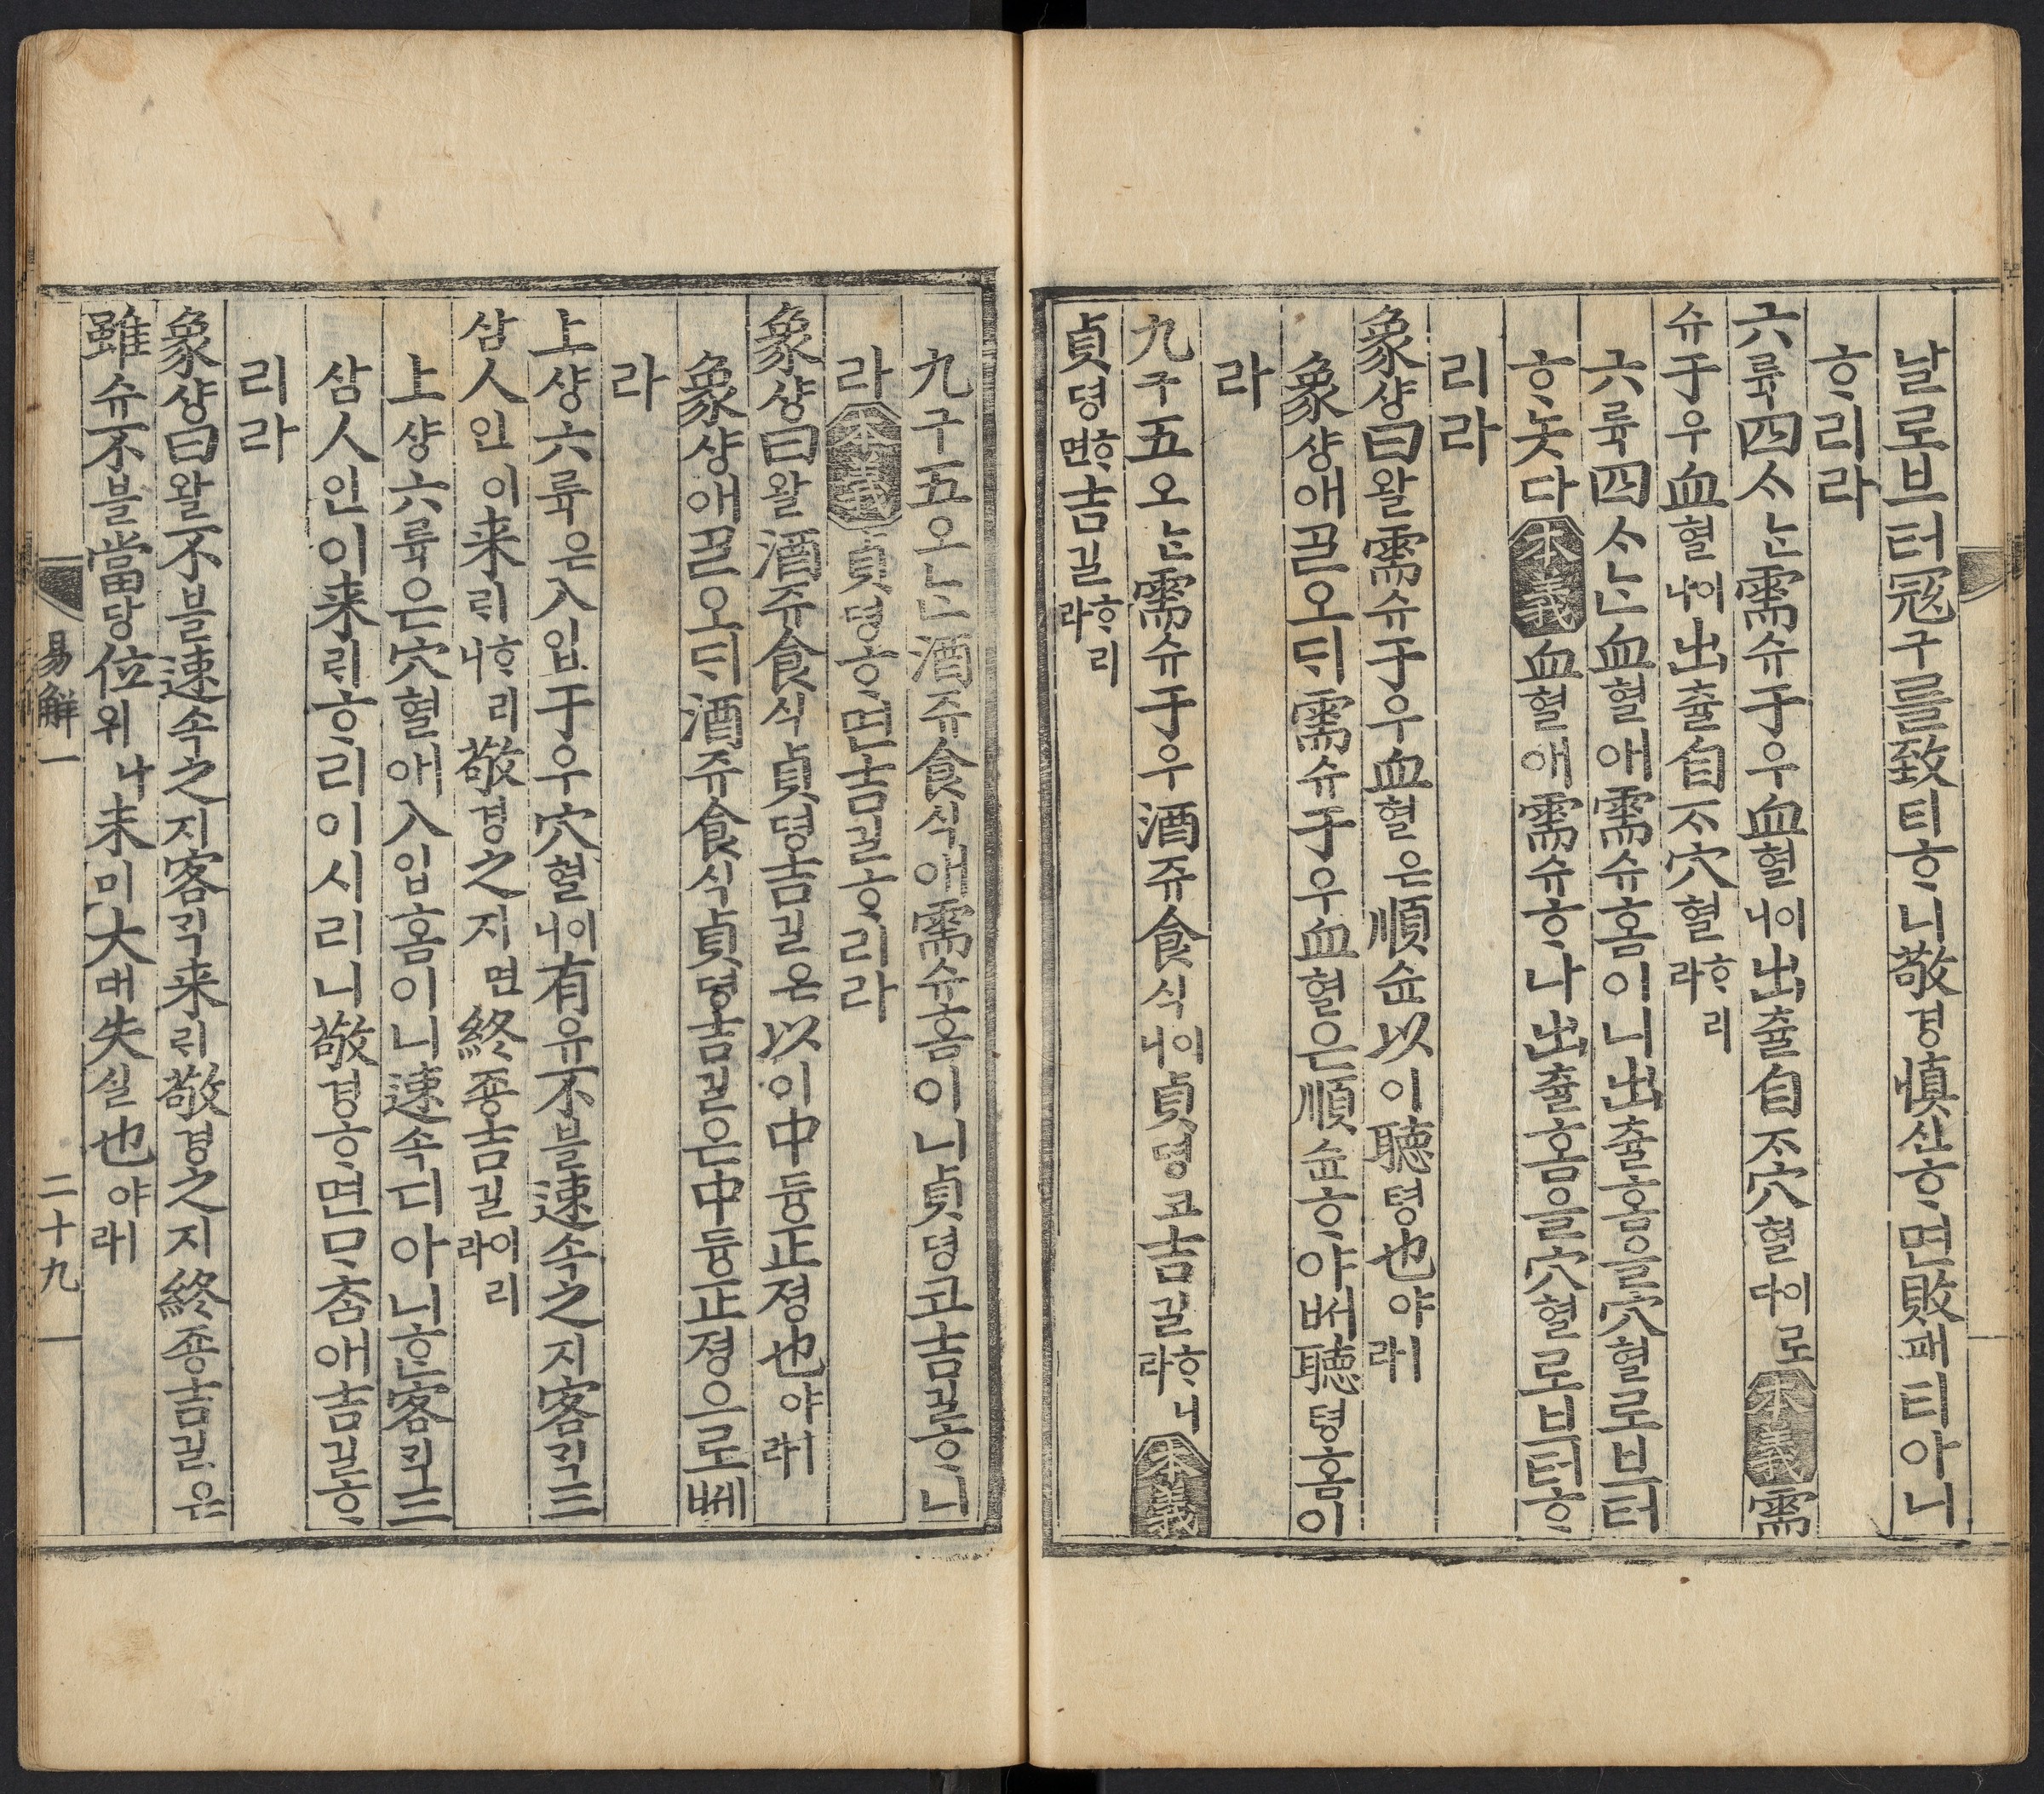 날로브터寇구를致티ᄒᆞ니敬경愼신ᄒᆞ면敗패티아니
ᄒᆞ리라
六륙四ᄉᆞᄂᆞᆫ需슈于우血혈이니出츌自ᄌᆞ穴혈이로다本義需
슈于우血혈이니出츌自ᄌᆞ穴혈ᄒᆞ리라
六륙四ᄉᆞᄂᆞᆫ血혈애需슈홈이니出츌홈을穴혈로브터
ᄒᆞ놋다本義血혈애需슈ᄒᆞ나出츌홈을穴혈로브터ᄒᆞ
리라
象샹曰왈需슈于우血혈은順슌以이聽텽也야ㅣ라
象샹애ᄀᆞᆯ오ᄃᆡ需슈于우血혈은順슌ᄒᆞ야ᄡᅥ聽텽홈이
라
九구五오ᄂᆞᆫ需슈于우酒쥬食식이니貞뎡코吉길ᄒᆞ니라本義
貞뎡ᄒᆞ면吉길ᄒᆞ리라
九구五오ᄂᆞᆫ酒쥬食식애需슈홈이니貞뎡코吉길ᄒᆞ니
라本義貞뎡ᄒᆞ면吉길ᄒᆞ리라
象샹曰왈酒쥬食식貞뎡吉길은以이中듕正졍也야ㅣ라
象샹애ᄀᆞᆯ오ᄃᆡ酒쥬食식貞뎡吉길은中듕正졍으로ᄡᅦ
라
上샹六륙은入입于우穴혈이니有유不블速속之지客ᄀᆡᆨ三
삼人인이来ᄅᆡᄒᆞ리니敬경之지면終죵吉길이리라
上샹六륙은穴혈애入입홈이니速속디아니ᄒᆞᆫ客ᄀᆡᆨ三
삼人인이来ᄅᆡᄒᆞ리이시리니敬경ᄒᆞ면ᄆᆞᄎᆞᆷ애吉길ᄒᆞ
리라
象샹曰왈不블速속之지客ᄀᆡᆨ来ᄅᆡ敬경之지終죵吉길은
雖슈不블當당位위나未미大대失실也야ㅣ라
易解一 二十九